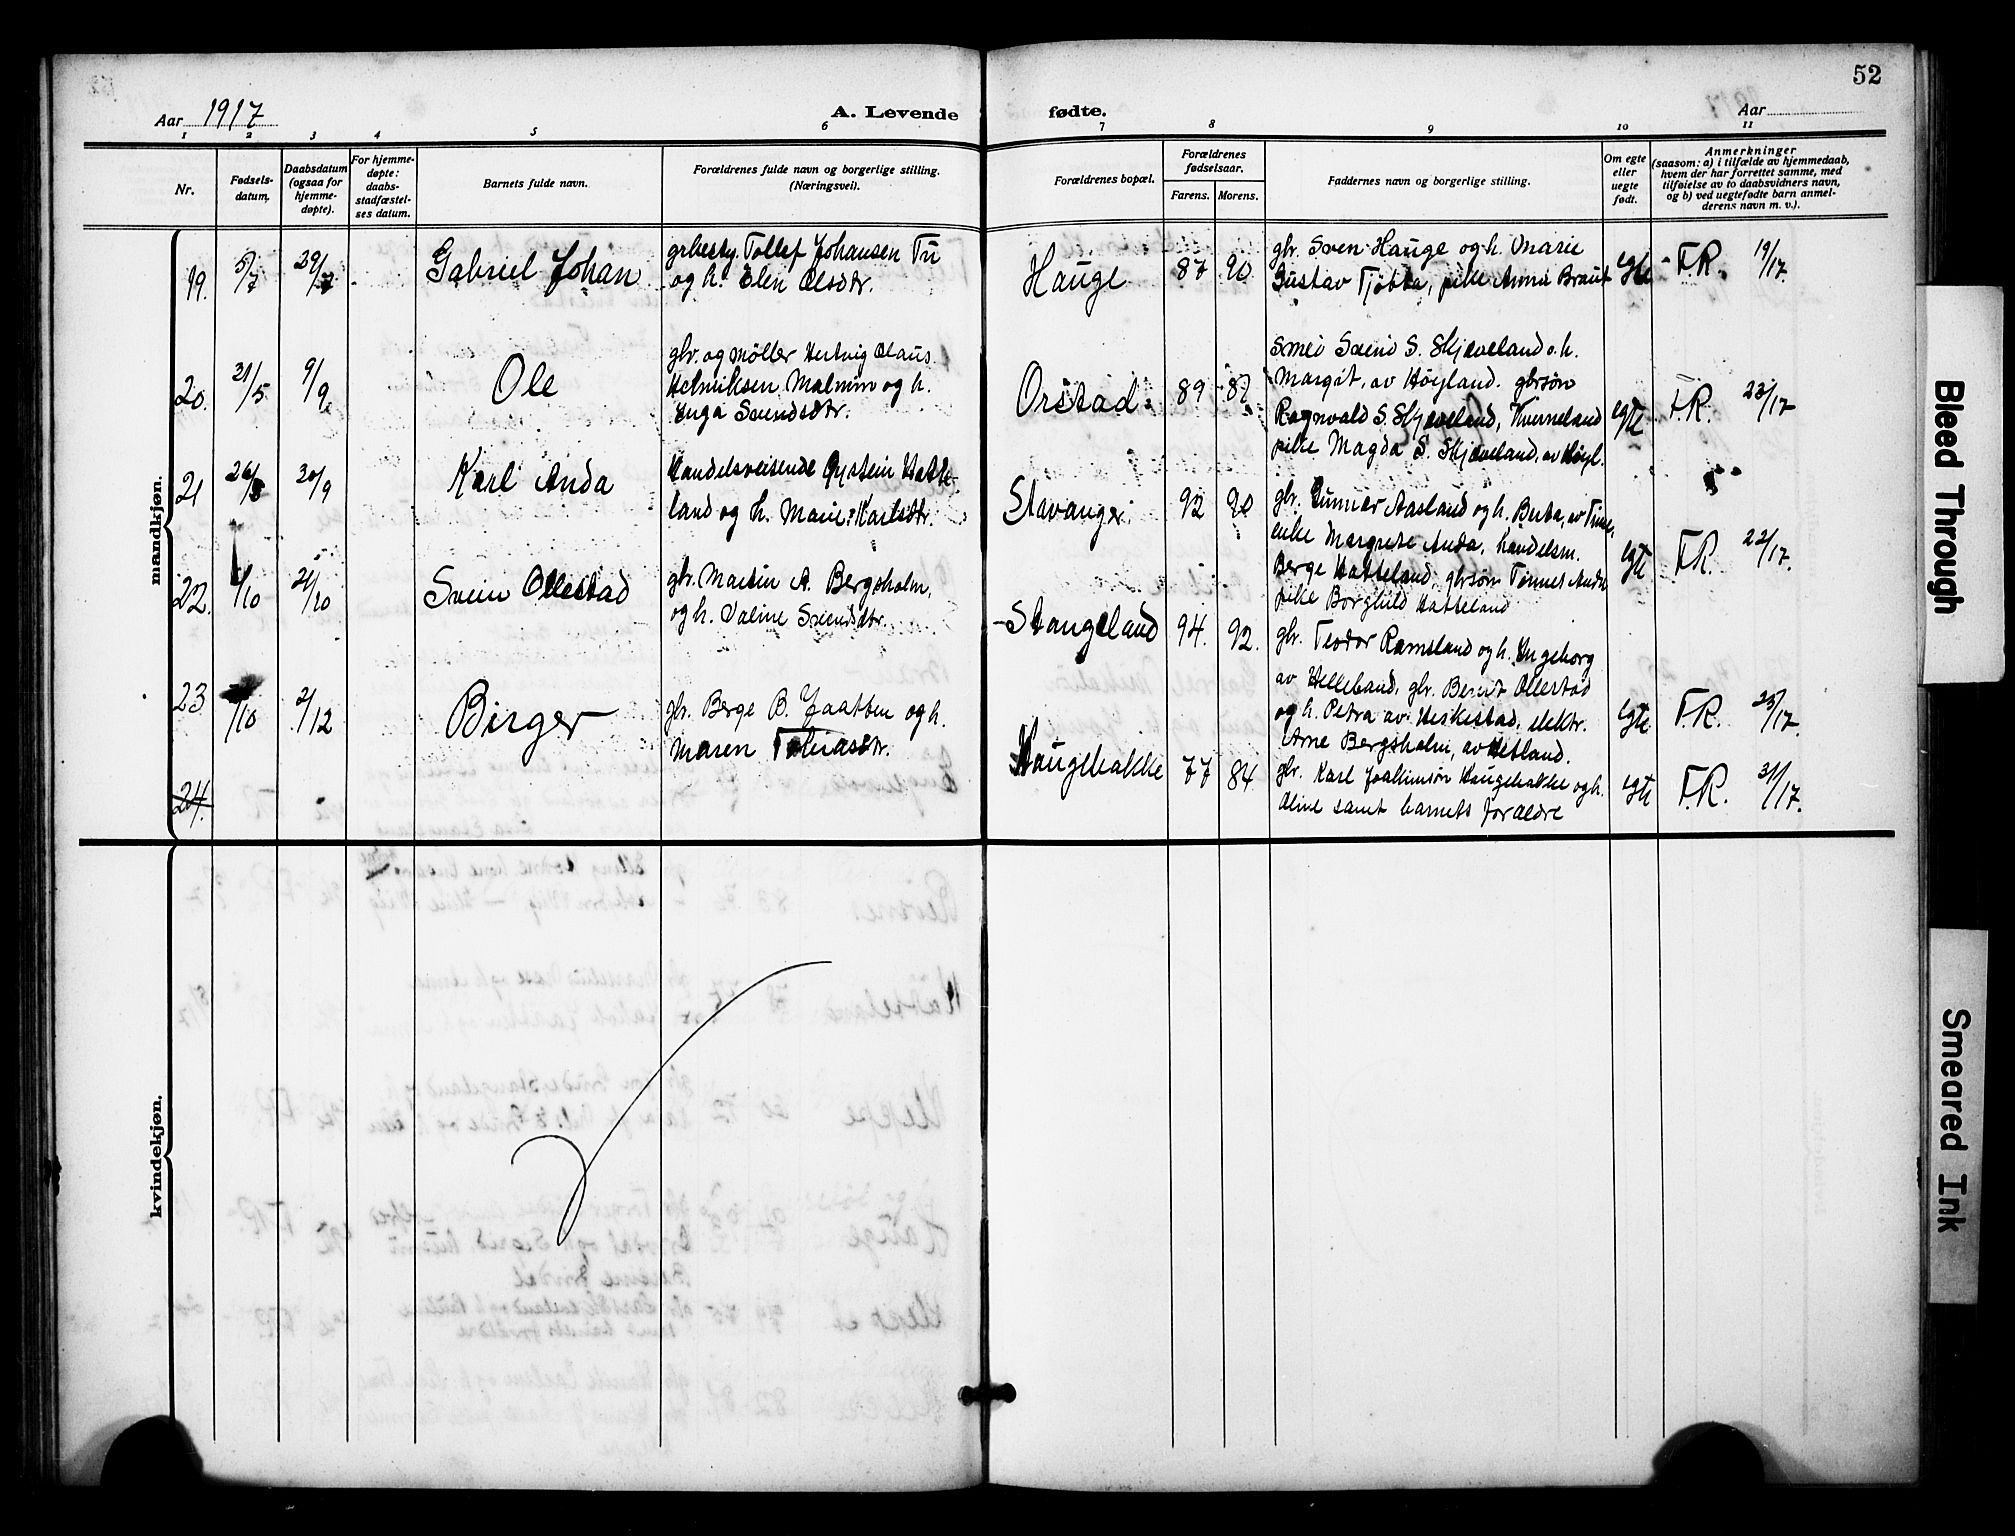 52
Aar 1917
A. Levende fødte.
Aar
1 2 3 4 5 6 7 8 9 10 11
Nr.
Fødsels-
datum.
Daabsdatum
(ogsaa for
hjemme-
døpte).
For hjemme-
døpte:
daabs-
stadfæstel-
ses datum.
Barnets fulde navn.
Forældrenes fulde navn og borgerlige stilling.
(Næringsvei).
Forældrenes bopæl.
Forældrenes
fødselsaar.
Farens. Morens.
Faddernes navn og borgerlige stilling.
Om egte
eller
uegte
født.
Anmerkninger
(saasom: a) i tilfælde av hjemmedaab,
hvem der har forrettet samme, med
tilføielse av to daabsvidners navn,
og b) ved uegtefødte barn anmel-
derens navn m. v.).
mandkjøn.
19. 5/7 29/7 Gabriel Johan
Tollef Johansen Tu
og h. Elen Olsdtr.
Hauge 87 90
gbr. Sven Hauge og h. Marie
Gustav Tjøtta, pike Anna Braut
egte F.R. 19/17.
20. 21/5 9/9 Ole
gbr. og møller Hertvig Claus
Henriksen Malmin og h.
Inga Svendsdtr.
Orstad. 89
Svend S. Skjæveland o. h.
Margit, av Høyland. gbrsøn
Ragnvald S. Skjæveland, Kverneland
pike Magda S. Skjæveland, av Høyl.
egte F.R. 23/17
21 26/8 30/9 Karl Anda
Handelsreisende Øystein Hatte-
land og h. Marie Karlsdtr.
Stavanger 92 90
gbr. Gunnar Aasland og h. Berta, av Time,
enke Margrete Anda, handelsm.
Berge Hatteland, gbrsøn Tønnes Anda
pike Borghild Hatteland
egte F.R. 22/17.
22. /10 21/10 Svein Ollestad
gbr. Martin A. Bergsholm.
og h. Valine Svendsdtr.
Stangeland 94. 92.
gbr. Teodor Ramsland og h. Ingeborg
av Helleland, gbr. Bernt Ollestad
og h. Petra av Heskestad, elektr.
Arne Bergsholm, av Hetland.
egte F.R. 25/17.
23 /10 2/12 Birger
gbr. Berge B. Jaatten og h.
Maren Tobiasdtr.
Haugebakke 77 84
gbr. Karl Joakimsøn Haugebakke og h.
Oline samt barnets forældre
egte F.R. 31/17.
24.
kvindekjøn.
Bleed Through
Smeared Ink